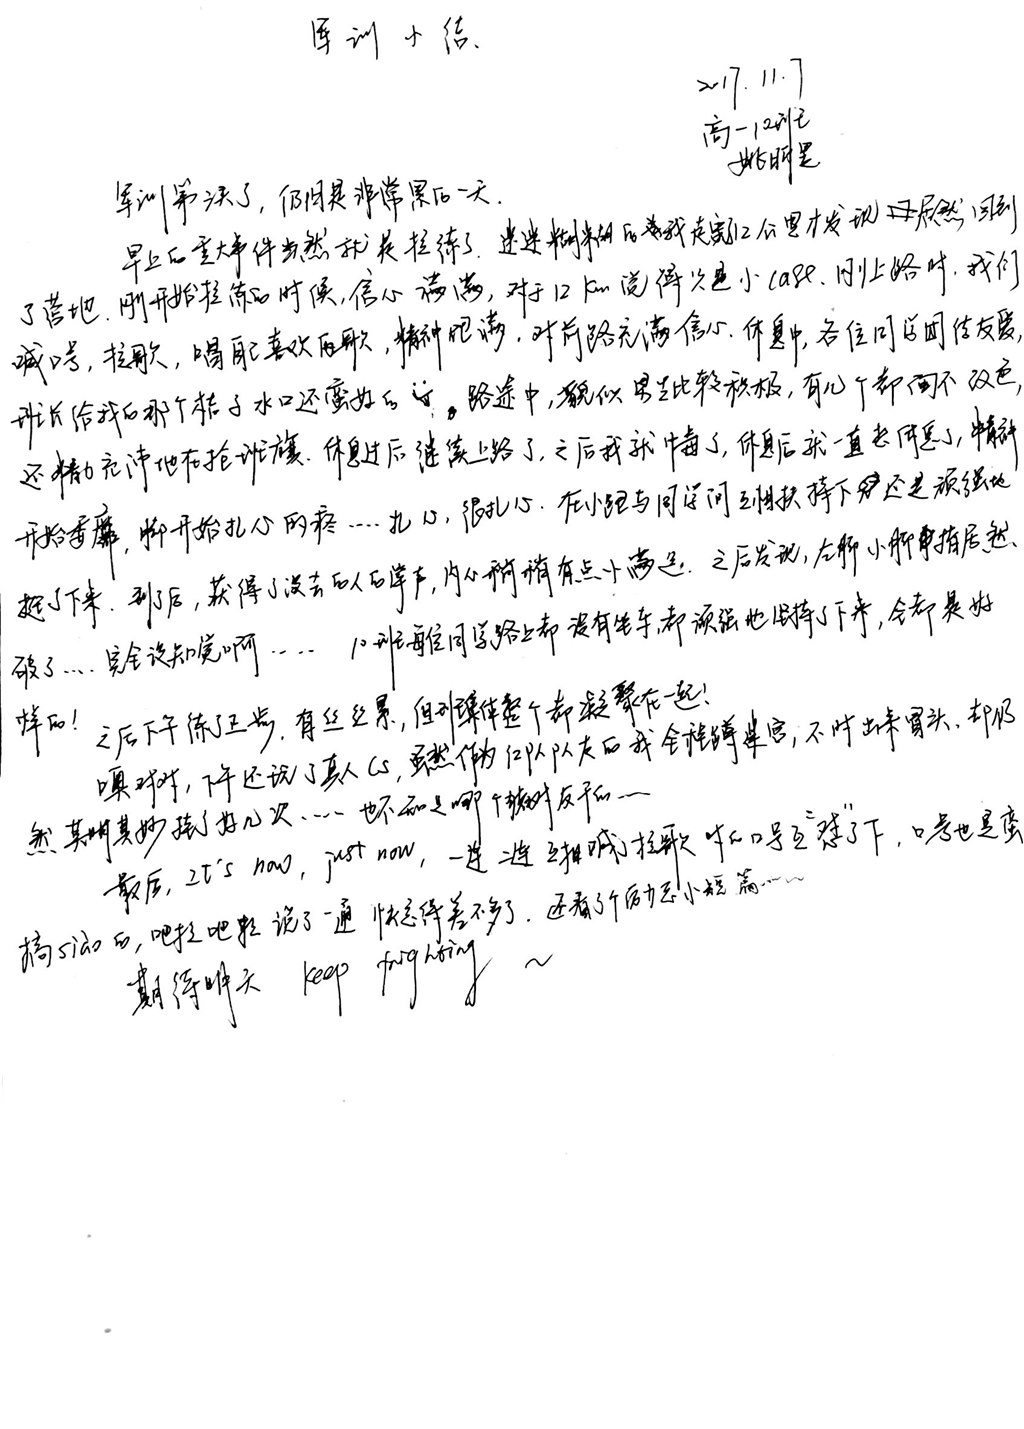 军训小结
2017.11.7
高一12班
姚
军训第三天了，仍旧是非常累的一天.
早上的重大事件当然就是拉练了. 迷迷糊糊的我走完12公里才发现居然回到
了营地. 刚开始拉练的时候，信心满满，对于12km觉得只是小case. 刚上路时，我们
喊口号，拉歌，唱自己喜欢的歌，精神饱满，对前路充满信心. 休息中，各位同学团结友爱，
班长给我的那个桔子水口还蛮好的。路途中，貌似男生比较积极，有几个都面不改色，
还精力充沛地在抢班旗. 休息过后继续上路了，之后我就中毒了，休息后就一直走到底了，精神
开始委靡，脚开始扎心的疼....扎心，很扎心. 在小跑与同学间互相扶持下还是顽强地
挺了下来. 到了后，获得了没去的人的掌声，内心稍稍有点小满足. 之后发现，左脚小脚拇指居然
破了....完全没知觉啊.... 12班每位同学路上都没有坐车，都顽强地坚持了下来，全都是好
样的！
之后下午练了正步，有丝丝累，但班集体整个都凝聚在一起！
嗅对对，下午还玩了真人CS，虽然作为红队队友的我全程蹲迷宫，不时出来冒头，却仍
然莫明其妙挂了好几次....也不知是哪个猪对友干的~~
最后，It's now, just now, 一连二连互相喊了拉歌时的口号互"怼"了下，口号也是蛮
搞siao的，吧拉吧啦说了一通 状态得差不多了. 还看了个励志小短篇~~
期待明天 keep fighting ~